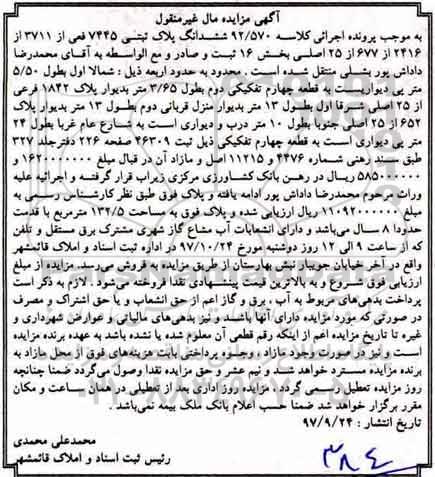 آگهی مزایده مال غیرمنقول
به موجب پرونده اجرائی کلاسه ۹۲/۵۷۰ ششدانگ پلاک ثبتی ۷۴۴۵ فعی از ۳۷۱۱ از
۲۴۱۶ از ۶۷۷ از ۲۵ اصلی بخش ۱۶ ثبت و صادر و مع الواسطه به آقای محمدرضا
داداش پور بشلی منتقل شده است . محدود به حدود اربعه ذیل : شمالا اول بطول ۵/۵۰
متر پی دیواریست به قطعه چهارم تفکیکی دوم بطول ۳/۶۵ متر بدیوار پلاک ۱۸۴۲ فرعی
از ۲۵ اصلی شرقا اول بطول ۱۳ متر بدیوار منزل قربانی دوم بطول ۱۳ متر بدیوار پلاک
۶۵۲ از ۲۵ اصلی جنوبا بطول ۱۰ متر درب و دیواری است به شارع عام غربا بطول ۲۴
متر پی دیواری است به قطعه چهارم تفکیکی ذیل ثبت ۴۶۳۰۹ صفحه ۲۲۶ دفترجلد ۳۲۷
طبق سند رهنی شماره ۴۴۷۶ و ۱۱۲۱۵ اصل و مازاد آن در قبال مبلغ ۱۶۲۰۰۰۰۰۰ و
۵۸۵۰۰۰۰۰۰ ریال در رهن بانک کشاورزی مرکزی زیراب قرار گرفته و اجرائیه علیه
وراث مرحوم محمدرضا داداش پور ادامه یافته و پلاک فوق طبق نظر کارشناس رسمی به
مبلغ ۱۱۰۹۲۰۰۰۰۰۰ ریال ارزیابی شده و پلاک فوق به مساحت ۱۳۲/۵ مترمربع با قدمت
حدودا ۸ سال می‌باشد و دارای انشعابات آب مشاع گاز شهری مشترک برق مستقل و تلفن
که از ساعت ۹ الی ۱۲ روز دوشنبه مورخ ۹۷/۱۰/۲۴ در اداره ثبت اسناد و املاک قائمشهر
واقع در آخر خیابان جویبار نبش بهارستان از طریق مزایده به فروش می‌رسد. مزایده از مبلغ
ارزیابی فوق شروع و به بالاترین قیمت پیشنهادی نقدا فروخته می‌شود . لازم به ذکر است
پرداخت بدهی‌های مربوط به آب ، برق و گاز اعم از حق انشعاب و یا حق اشتراک و مصرف
در صورتی که مورد مزایده دارای آنها باشد و نیز بدهی‌های مالیاتی و عوارض شهرداری و
غیره تا تاریخ مزایده اعم از اینکه رقم قطعی آن معلوم شده یا نشده باشد به عهده برنده مزایده
است و نیز در صورت وجود مازاد ، وجوه پرداختی بابت هزینه‌های فوق از محل مازاد به
برنده مزایده مسترد خواهد شد و نیم عشر و حق مزایده نقدا وصول می‌گردد ضمنا چنانچه
روز مزایده تعطیل رسمی گردد ، مزایده روز اداری بعد از تعطیلی در همان ساعت و مکان
مقرر برگزار خواهد شد ضمنا حسب اعلام بانک ملک بیمه نمی‌باشد .
تاریخ انتشار : ۹۷/۹/۲۴
محمدعلی محمدی
رئیس ثبت اسناد و املاک قائمشهر
۳۸۴